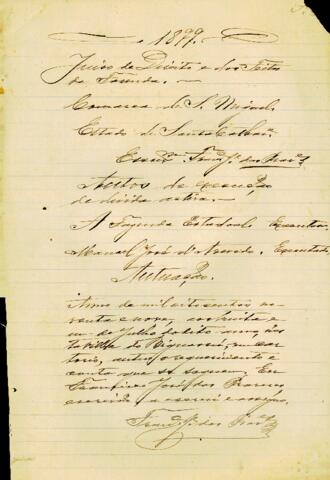 1899.
Juizo de Direito e dos Feitos
da Fazenda. —
Comarca de S. Miguel
Estado de Santa Cathar.ª
Escr.ᵐ Fran.co J. dos
Autos de execução
de divida activa. —
A Fazenda Estadoal. Exequente
Manoel José d'Azevedo. Executado
Autuação.
Anno de mil oitocentos no
venta e nove, aos trinta e
um de Julho do dito anno, nes
ta villa de Biguassú, em car
torio, autuo o requerimento e
conta que se seguem. Eu
Francisco José dos
escrivão, o escrevi e assigno.
Fran.co J. dos